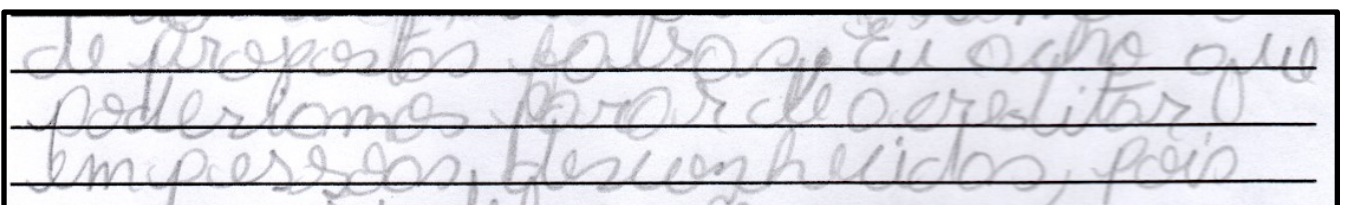 de propostas falsas, Eu acho que
poderiamos parar de acreditar
em pessoas, desconhecidas, pois